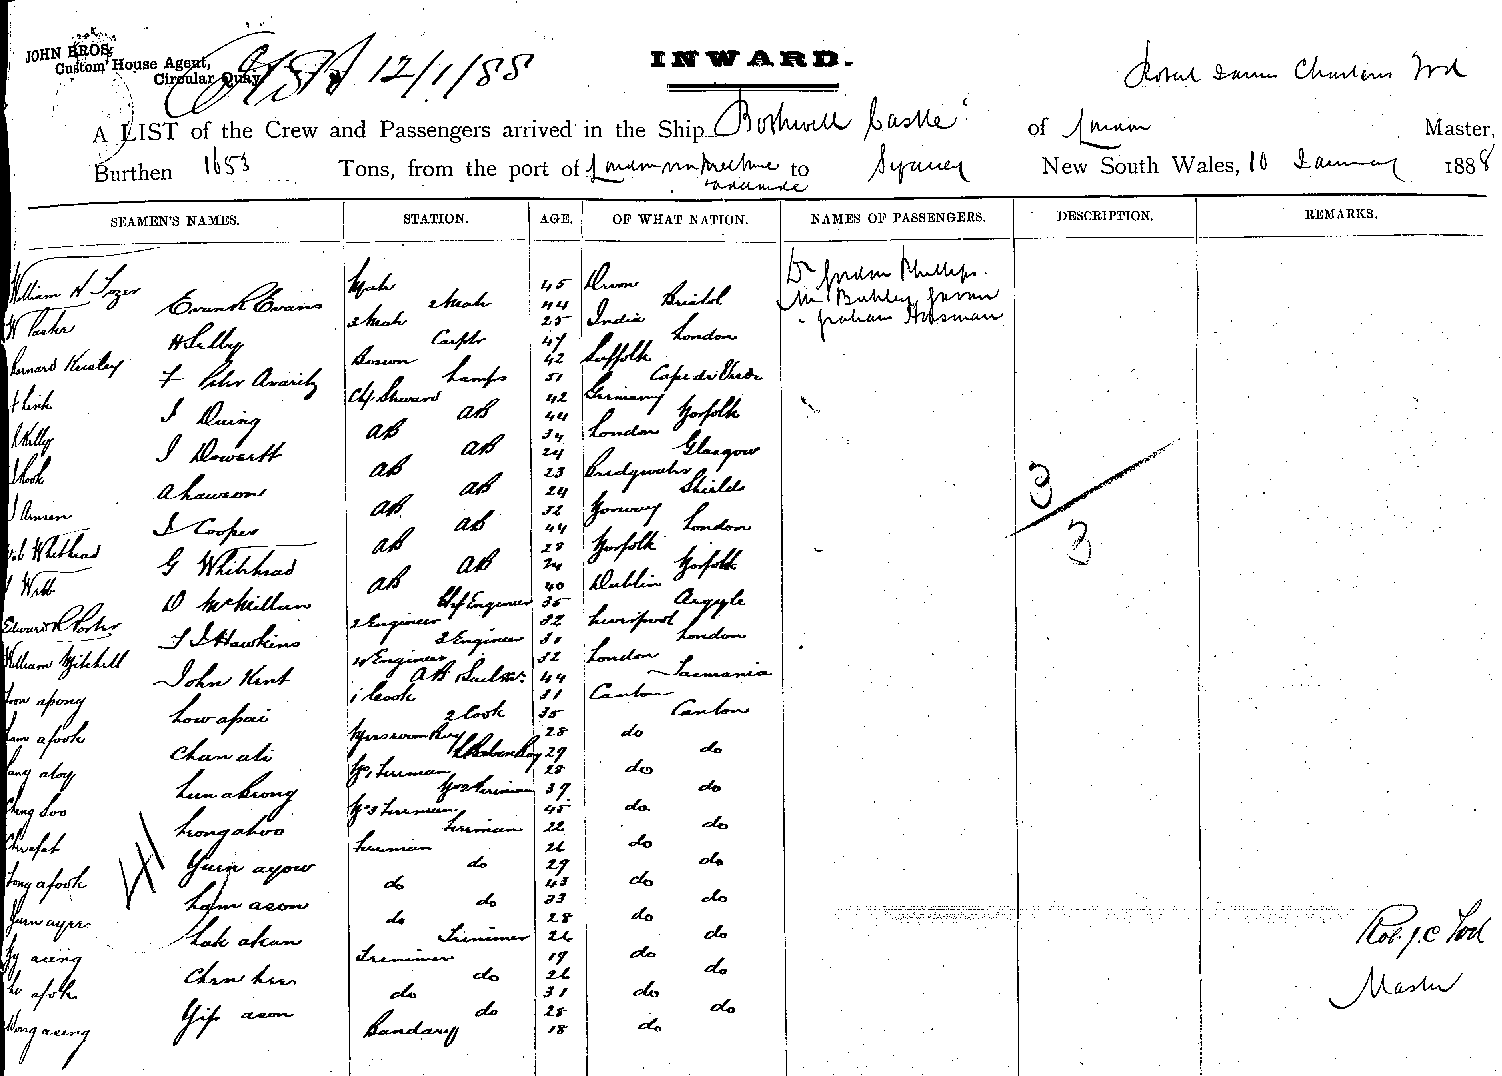 JOHN BROS.
Custom House Agent,
Circular Quay
12/1/88
INWARD.
Robert James Charteris Tod
A LIST of the Crew and Passengers arrived in the Ship Bothwell Castle of London Master,
Burthen 1653 Tons, from the port of London via Melbourne to Sydney New South Wales, 10 January 1888
SEAMEN'S NAMES. STATION. AGE. OF WHAT NATION. NAMES OF PASSENGERS. DESCRIPTION. REMARKS.
William H Tozer Mate 45 Devon Dr Gordon Phillips.
Evan R Evans 2 Mate 44 Bristol Mr
W Parker 3 Mate 25 India Graham Horsman
H Selby Carptr 47 London
Bernard Keasley Bosun 42 Suffolk
Lamps 51 Cape de Verde
Link Ch Steward 42 Germany
J Duing AB 44 Norfolk
Kelly AB 34 London
J AB 24 Glasgow
Cook AB 23 Bridgwater
A Lawson AB 24 Shields
J Ansen AB 32 Norway
J Cooper AB 44 London
Whithead AB 28 Norfolk
G Whitehead AB 24 Norfolk
Webb AB 40 Dublin
D McMillan Chf Engineer 35 Argyle
Edward R Porter 2 Engineer 32 Liverpool
F J Hawkins 3 Engineer 31 London
William Mitchell 4 Engineer 32 London
John Kent AB 44 Tasmania
apong 1 Cook 31 Canton
Low apai 2 Cook 35 Canton
Lam afook Messroom Boy 28 do
Chan ati 29 do
No 1 Fireman 28 do
Lun akong No 2 Fireman 39 do
Cheng Soo No 3 Fireman 45 do
Leong ahoo Fireman 22 do
Fireman 26 do
Yuen ayow do 29 do
Tong afook do 43 do
Lam asom do 33 do
Yuen do 28 do
Lak akan Trimmer 26 do
aseng Trimmer 19 do
Chen do 26 do
afok do 31 do
Yip ason do 28 do
Wong aseng Bandary 18 do
3
3
41
Rob. J. C Tod
Master